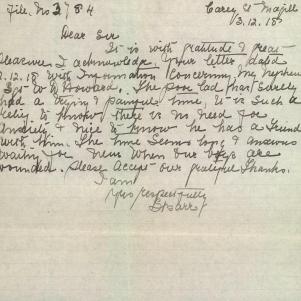 File No 3784
Carey St
3.12.18
Dear Sir
It is with gratitude & great
Pleasure I acknowledge your letter, dated
3.12.18 With Information Concerning My Nephew
Sgt W Howard. The poor lad has surely
had a trying & painful time, it is such a
relief to know there is no need for
Anxiety & Nice to know he has a Friend
With him. The time seems long & anxious
waiting for News When our boys are
wounded. Please Accept our grateful thanks.
I am
Yours respectfully